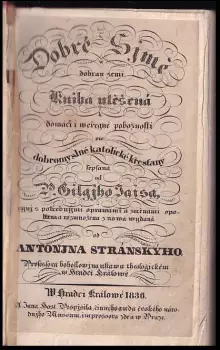 Dobré Symě
w
dobrau zemi.
Kniha utěšená
domácj i weřegné pobožnosti
pro
dobromyslné katolické křesťany
sepsaná
od
P. Gilgjho Jaisa,
nynj s potřebnými oprawami a změnami opa-
a rozmnožená z nowa wydaná
od
ANTONJNA STRÁNSKÝHO,
Professora bohoslowj na ústawu theologickém
w Hradci Králowé
W Hradci Králowé 1830.
U Jana Host. Pospjšila, českého náro-
dnjho Museum, impressora a w Praze.